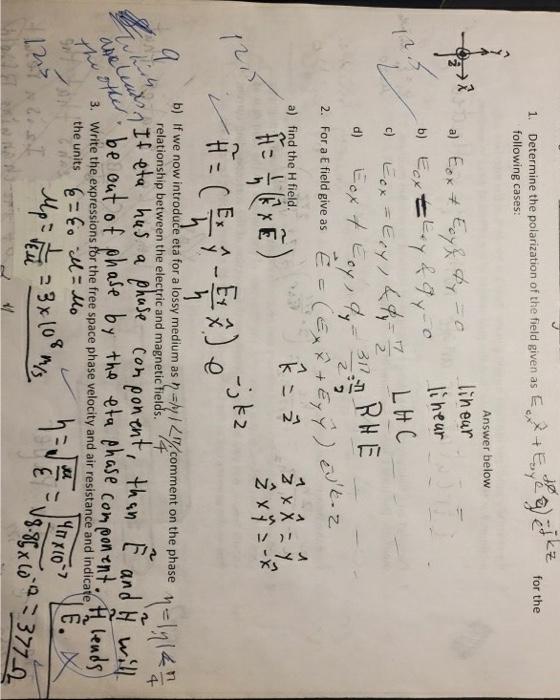 1. Determine the polarization of the field given as E₀ₓ x̂ + E₀y e^jφy ŷ) e^-jkz for the
following cases:
Answer below
a) E₀ₓ ≠ E₀y & φy = 0 linear
b) E₀ₓ = E₀y & φy = 0 linear
c) E₀ₓ = E₀y, & φy = π/2 LHC
d) E₀ₓ ≠ E₀y, φy = 3π/2 RHE
12.5
ŷ
x̂
z
2. For a E field give as Ẽ = (Eₓ x̂ + Ey ŷ) e^-jk·z
a) find the H field.
H̃ = 1/η (k̂ x Ẽ) k̂ = ẑ ẑ x x̂ = ŷ
ẑ x ŷ = -x̂
12.5
H̃ = (Eₓ/η ŷ - Ey/η x̂) e^-jkz
b) If we now introduce eta for a lossy medium as η =|η| <π/4 comment on the phase η = |η| < π/4
relationship between the electric and magnetic fields.
9
which
leads
the other
If eta has a phase component, then Ẽ and H̃ will
be out of phase by the eta phase component. H̃ leads
Ẽ. X
3. Write the expressions for the free space phase velocity and air resistance and indicate
the units ε = ε₀ μ = μ₀
12.5
μp = 1/√εμ = 3 x 10⁸ m/s η = √μ/ε = √4π x 10⁻⁷ / 8.85 x 10⁻¹² = 377 Ω